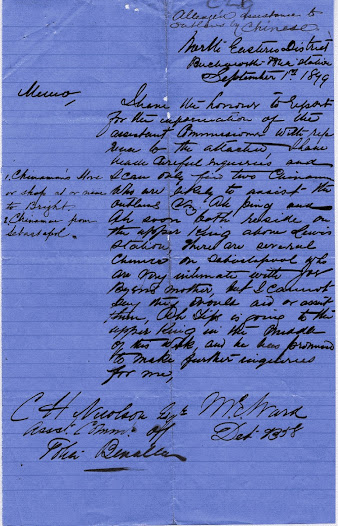 Alleged assistance to
outlaws by Chinese
North Eastern District
Beechworth Police Station
September 1st 1879
Memo,
I have the honour to report
for the information of the
assistant Commissioner with refe
rence to the attached I have
made careful inquiries and
I can only find two Chinamen
who are likely to assist the
outlaws viz Ah Ping and
Ah Soon both reside on
the upper King above Lewis
Station There are several
Chinese on Sebastopol who
are very intimate with Joe
Byrnes mother, but I cannot
say they would aid or assist
them, Ah Sip is going to the
upper King in the middle
of this week and he has promised
to make further inquiries
for me,
1. Chinaman's Store
or shop at or near
to Bright.
2. Chinamen from
Sebastopol.
C H Nicolson Esqr
Asst. Commr. of
Police Benalla
M E Ward
Det 1358